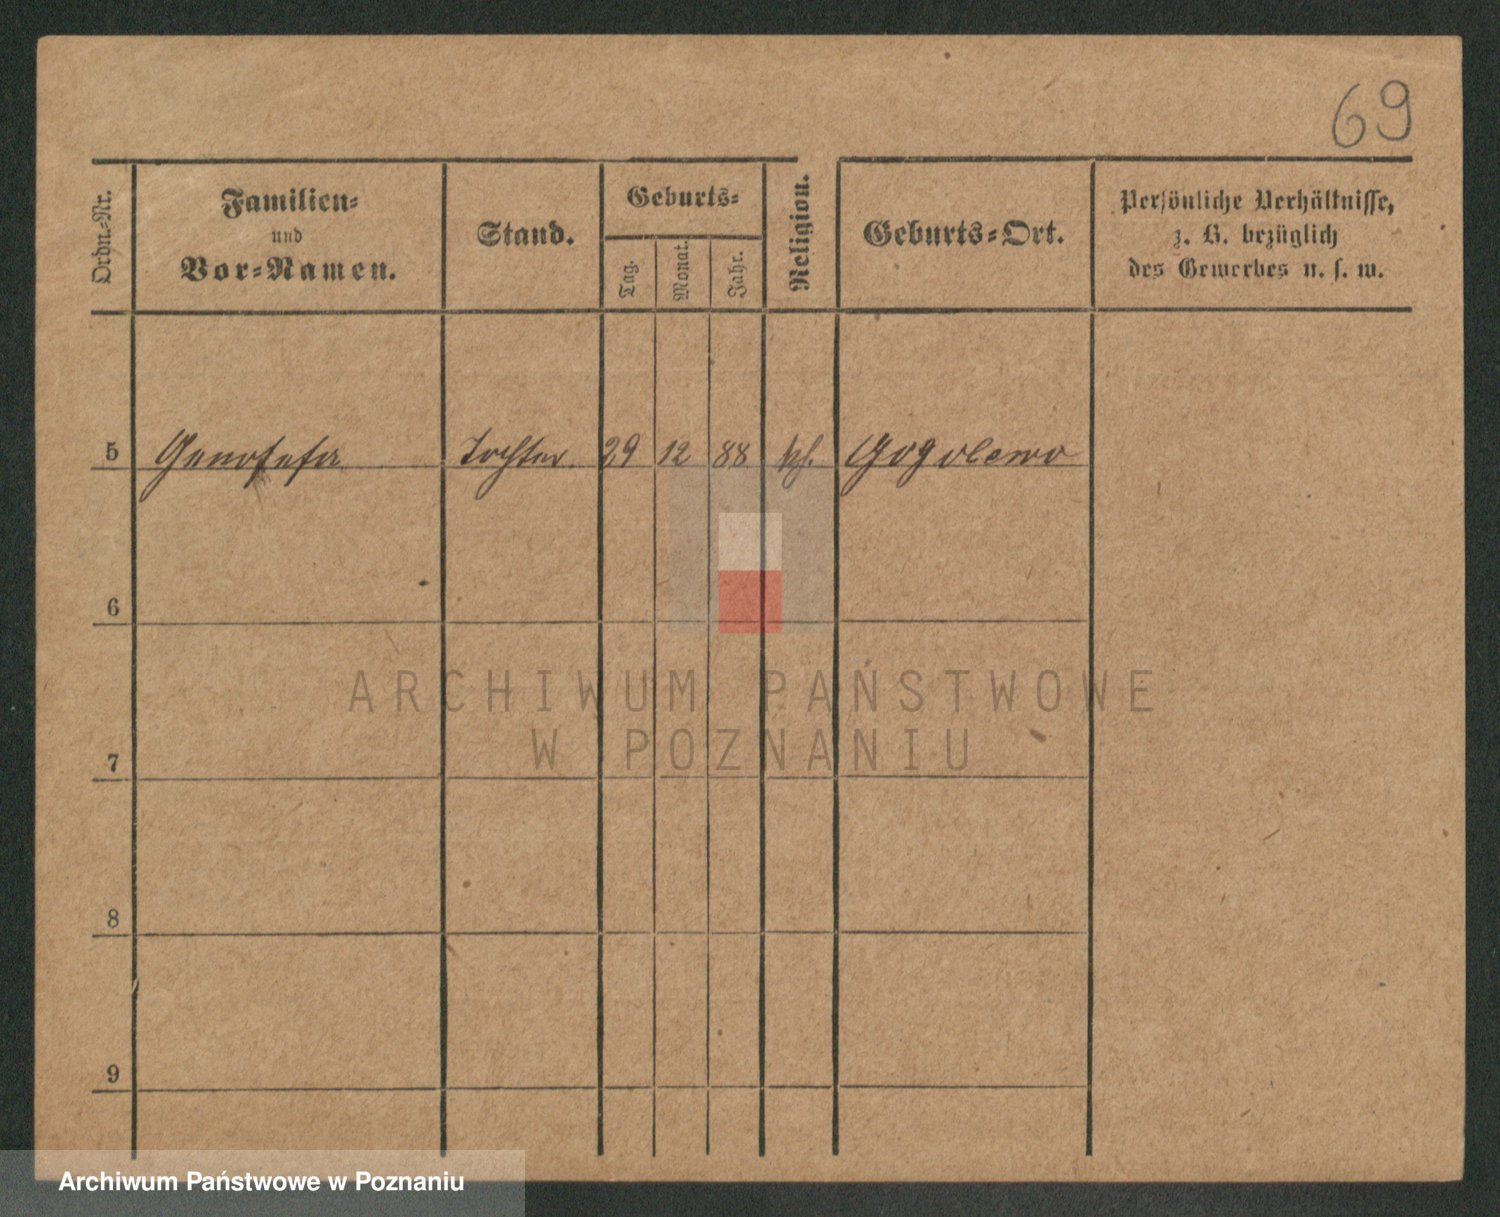 69
Ordn.-Nr.
Familien-
und
Vor-Namen.
Stand.
Geburts-
Tag.
Monat.
Jahr.
Religion.
Geburts-Ort.
Persönliche Verhältnisse,
z. B. bezüglich
des Gewerbes u. s. w.
5 Genofefa Tochter. 29 12 88 kh. Gogolewo
6
7
8
9
ARCHIWUM PAŃSTWOWE
W POZNANIU
Archiwum Państwowe w Poznaniu